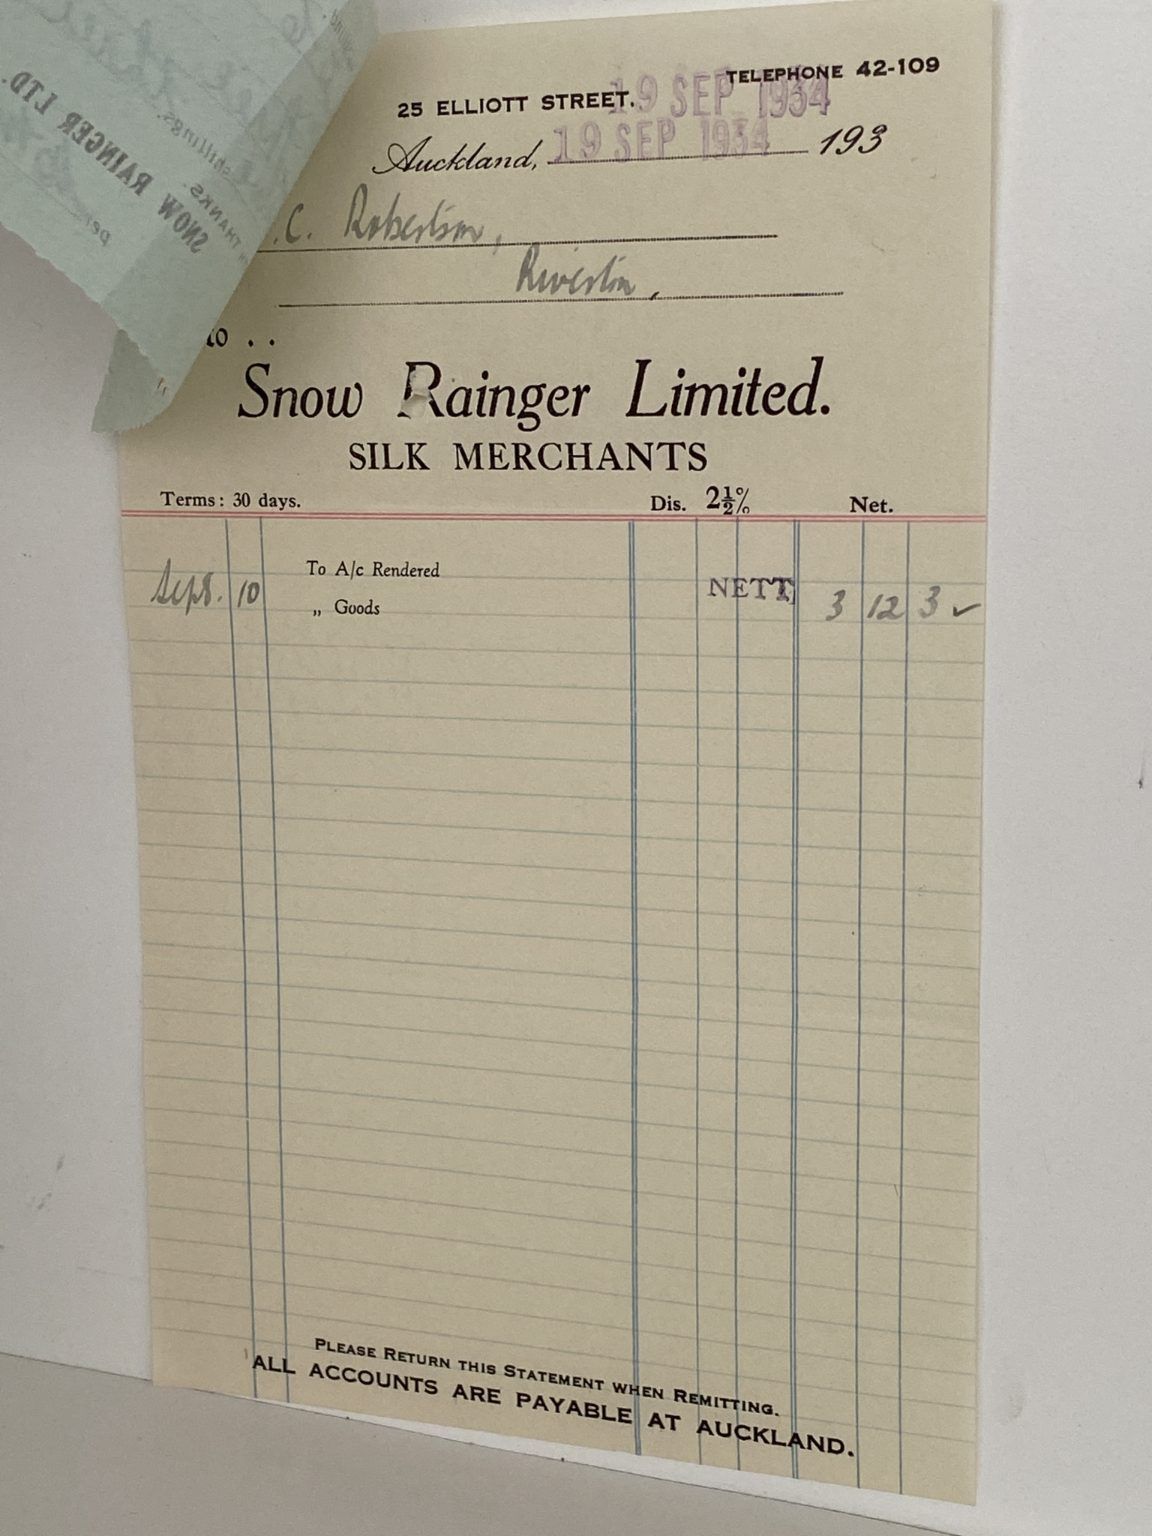 TELEPHONE 42-109
25 ELLIOTT STREET.
19 SEP 1934
Auckland, 19 SEP 1934 193
.C. Robertson,
Riverton,
to . .
Snow Rainger Limited.
SILK MERCHANTS
Terms: 30 days. Dis. 2½% Net.
To A/c Rendered
Sept. 10 „ Goods NETT 3 12 3 ✓
PLEASE RETURN THIS STATEMENT WHEN REMITTING.
ALL ACCOUNTS ARE PAYABLE AT AUCKLAND.
shillings.
THANKS
SNOW RAINGER LTD.
per